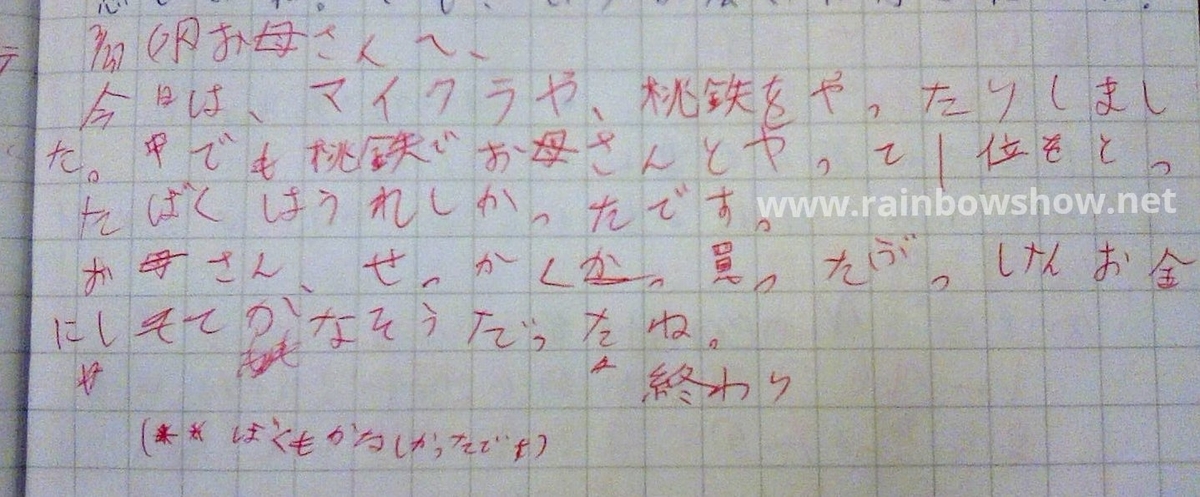 (月) お母さんへ、
今日は、マイクラや、桃鉄をやったりしまし
た。中でも桃鉄でお母さんとやって1位をとっ
たばくはうれしかったです。
お母さん、せっかく買ったぶっけんお金
にしてかなそうだったね。
終わり
(ぼくもかなしかったです)
www.rainbowshow.net